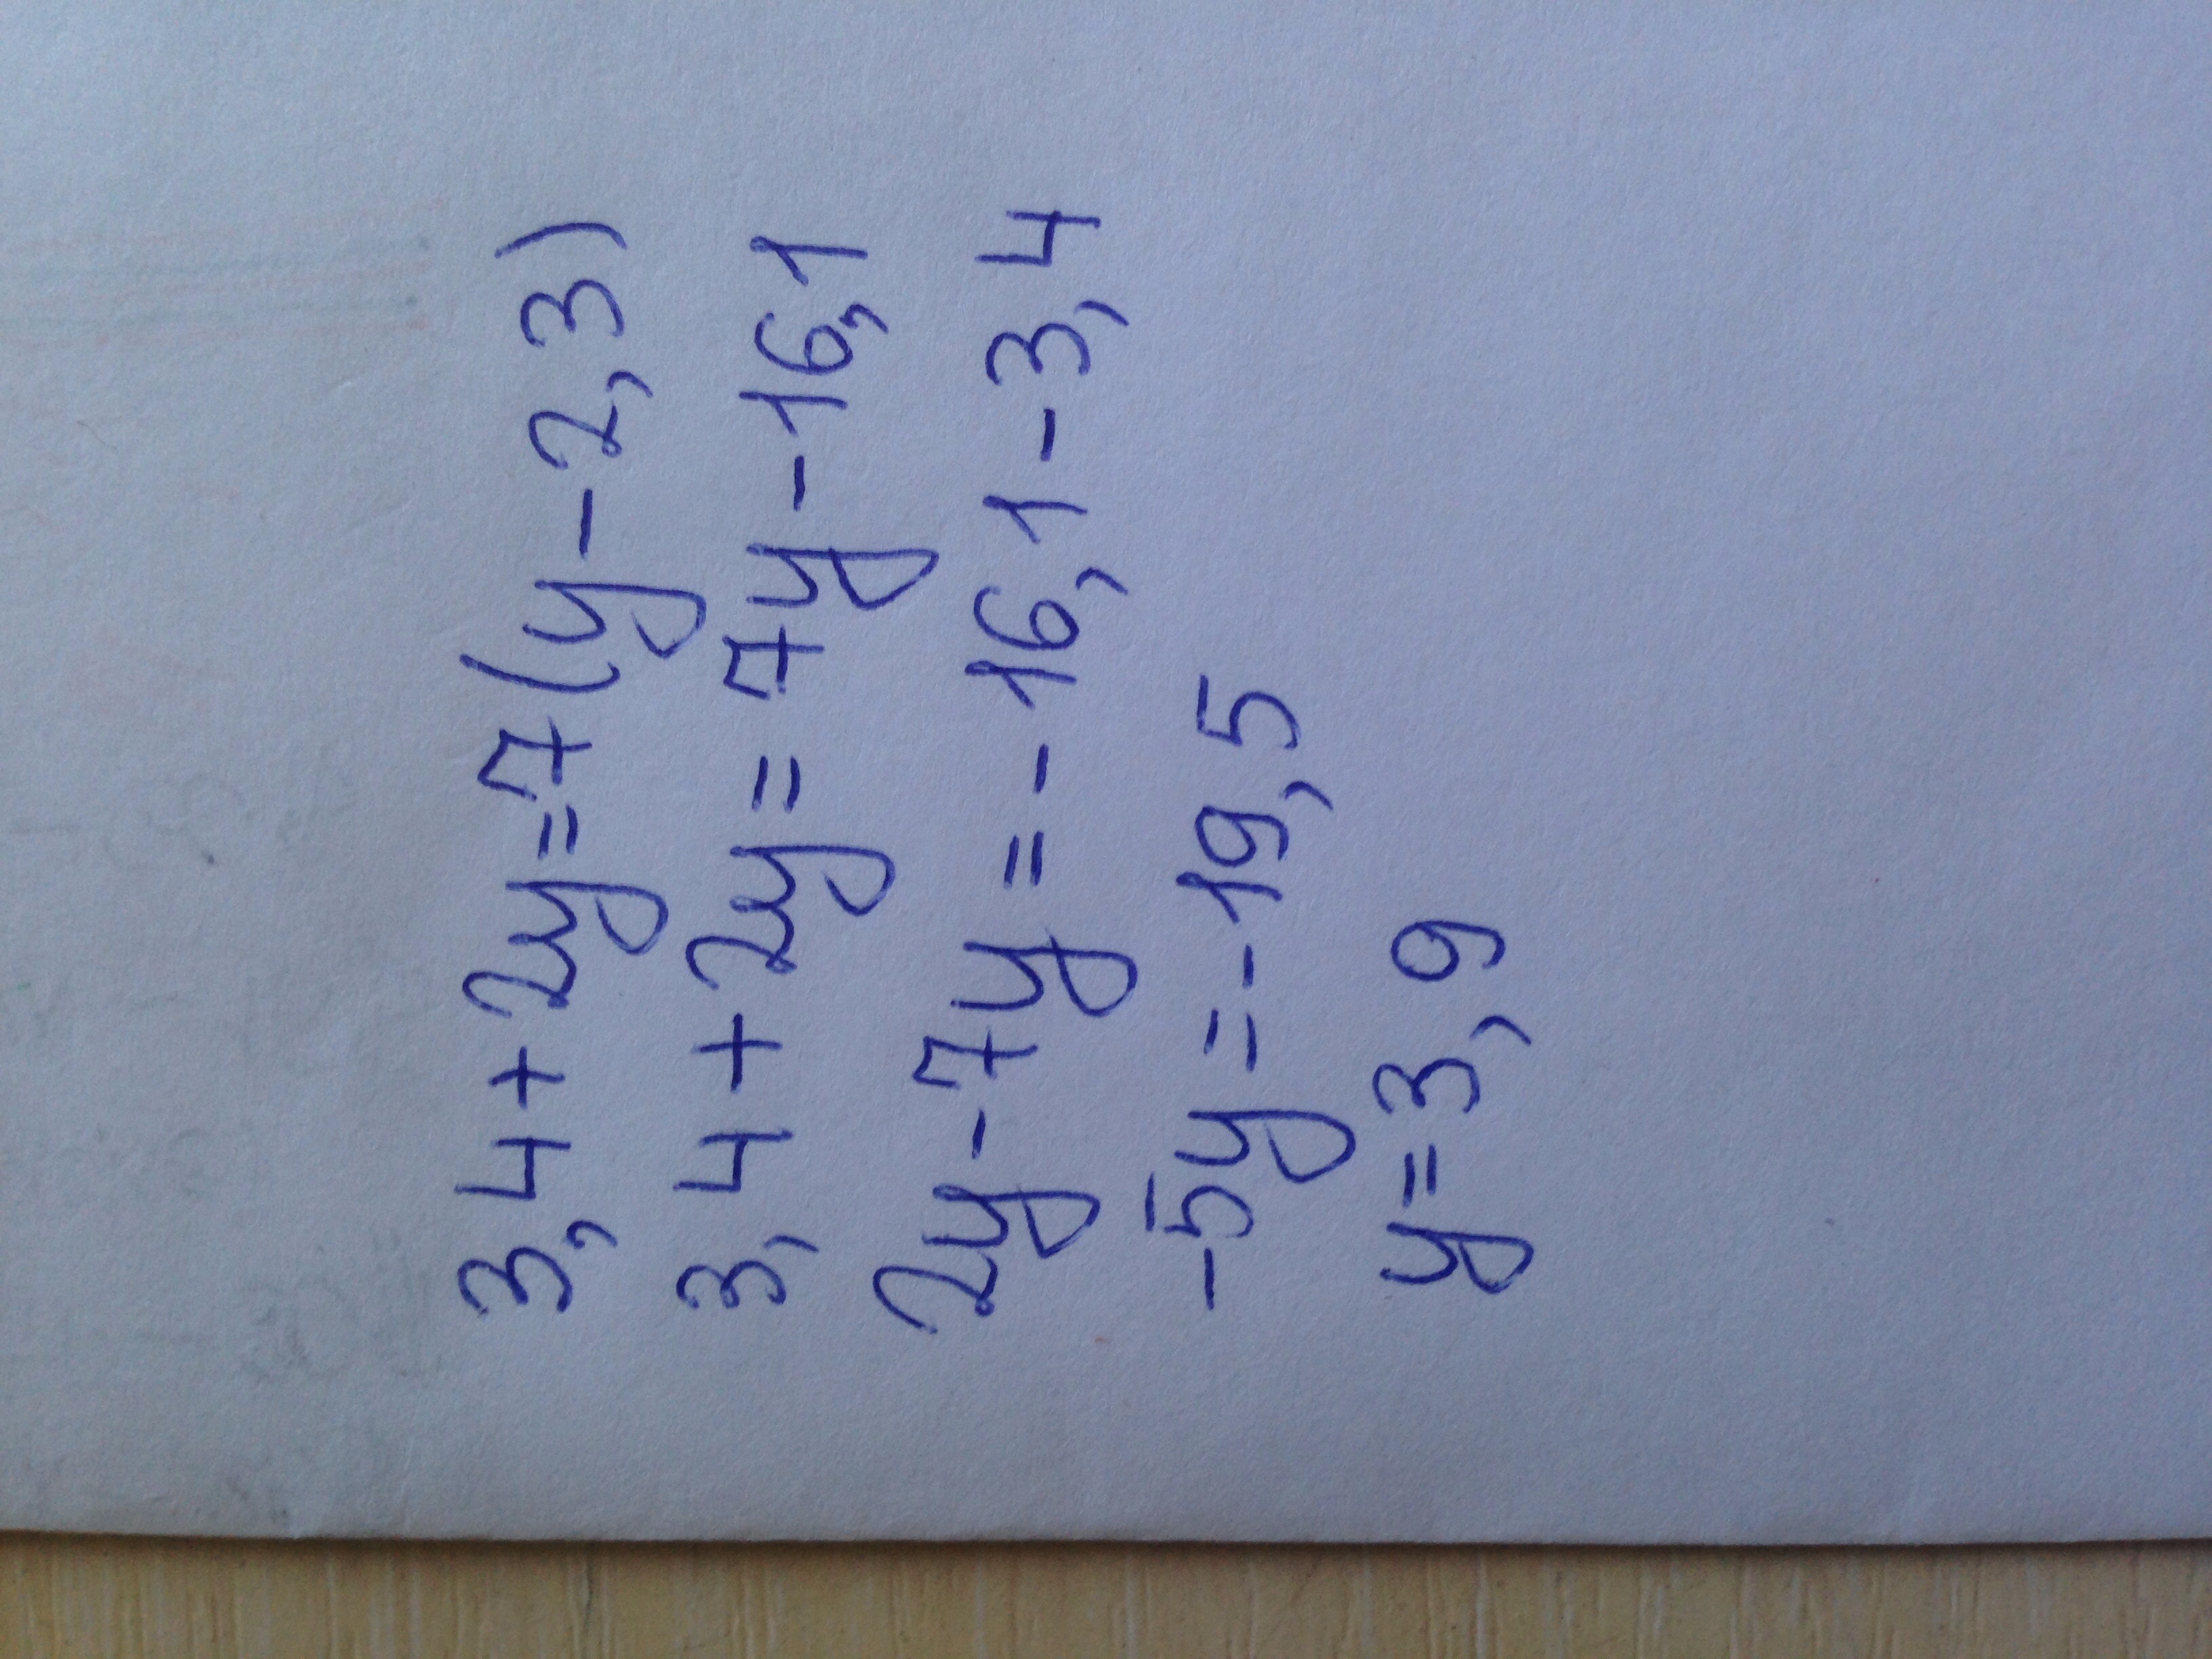 3,4+2y=7(y-2,3)
3,4+2y=7y-16,1
2y-7y=-16,1-3,4
-5y=-19,5
y=3,9